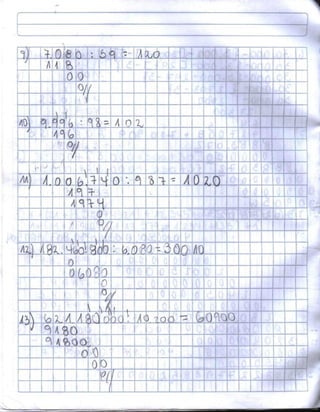 9) 7.080 : 59 = 120
118
00
0//
10) 9.996 : 98 = 102
196
0//
11) 1.006.740 : 987 = 1020
197
1974
0
0//
12) 182.460.800 : 6.080 = 30010
0
06080
0
0
0//
13) 621.180.000 : 10 200 = 60900
9180
91800
00
00
0//